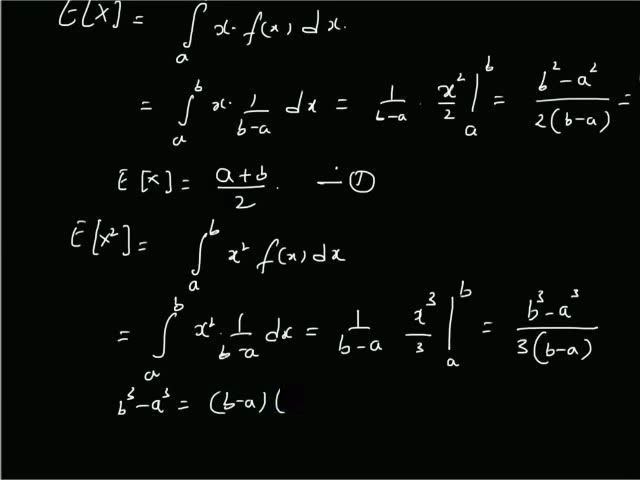 E[X] = ∫ₐ x· f(x) dx.
= ∫ₐᵇ x· 1/(b-a) dx = 1/(b-a) · x²/2 |ₐᵇ = (b² - a²)/(2(b-a)) =
E[x] = (a+b)/2 . — ①
E[x²] = ∫ₐᵇ x² f(x) dx
= ∫ₐᵇ x² · 1/(b-a) dx = 1/(b-a) x³/3 |ₐᵇ = (b³ - a³)/(3(b-a))
b³ - a³ = (b-a) (